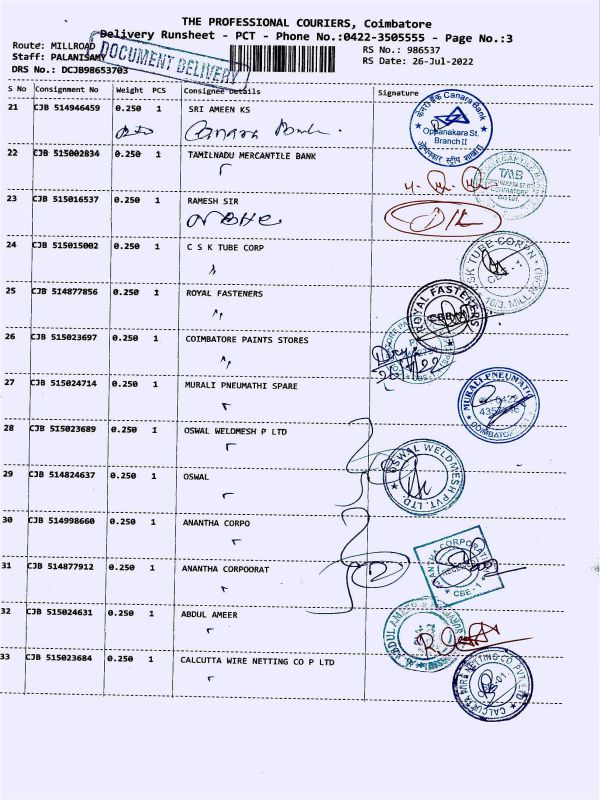 THE PROFESSIONAL COURIERS, Coimbatore
Delivery Runsheet - PCT - Phone No.:0422-3505555 - Page No.:3
Route: MILLROAD
RS No.: 986537
Staff: PALANISAMY
RS Date: 26-Jul-2022
DRS No.: DCJB98653703
DOCUMENT DELIVERY
S No Consignment No Weight PCS Consignee Details Signature
21 CJB 514946459 0.250 1 SRI AMEEN KS
Canara Bank
केनरा बैंक Canara Bank
Oppanakara St.
Branch II
22 CJB 515002834 0.250 1 TAMILNADU MERCANTILE BANK
TMB
23 CJB 515016537 0.250 1 RAMESH SIR
24 CJB 515015002 0.250 1 C S K TUBE CORP
SK TUBE CORPN
CBE - 1
25 CJB 514877856 0.250 1 ROYAL FASTENERS
ROYAL FASTENERS
26 CJB 515023697 0.250 1 COIMBATORE PAINTS STORES
27 CJB 515024714 0.250 1 MURALI PNEUMATHI SPARE
MURALI PNEUMATH
0422
COIMBATORE
28 CJB 515023689 0.250 1 OSWAL WELDMESH P LTD
29 CJB 514824637 0.250 1 OSWAL
OSWAL WELDMESH PVT. LTD.
30 CJB 514998660 0.250 1 ANANTHA CORPO
31 CJB 514877912 0.250 1 ANANTHA CORPOORAT
CBE - 1
32 CJB 515024631 0.250 1 ABDUL AMEER
33 CJB 515023684 0.250 1 CALCUTTA WIRE NETTING CO P LTD
CALCUTTA WIRE NETTING CO. PVT. LTD